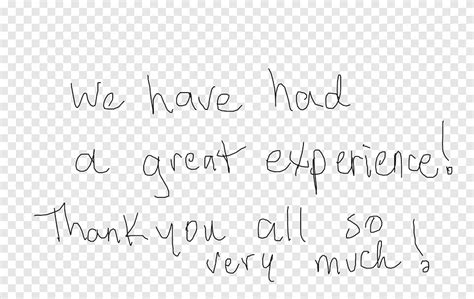 We have had
a great experience!
Thank you all so
very much!